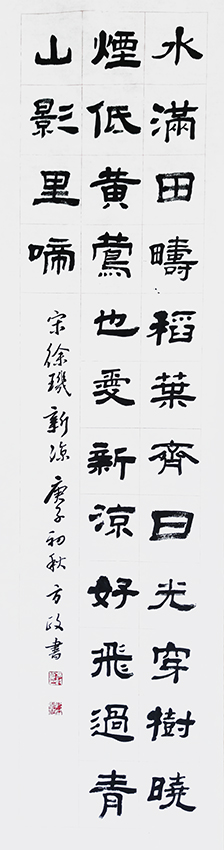 水滿田疇稻葉齊日光穿樹曉
煙低黄鶯也愛新涼好飛過青
山影里啼
宋徐璣新凉庚子初秋方政書